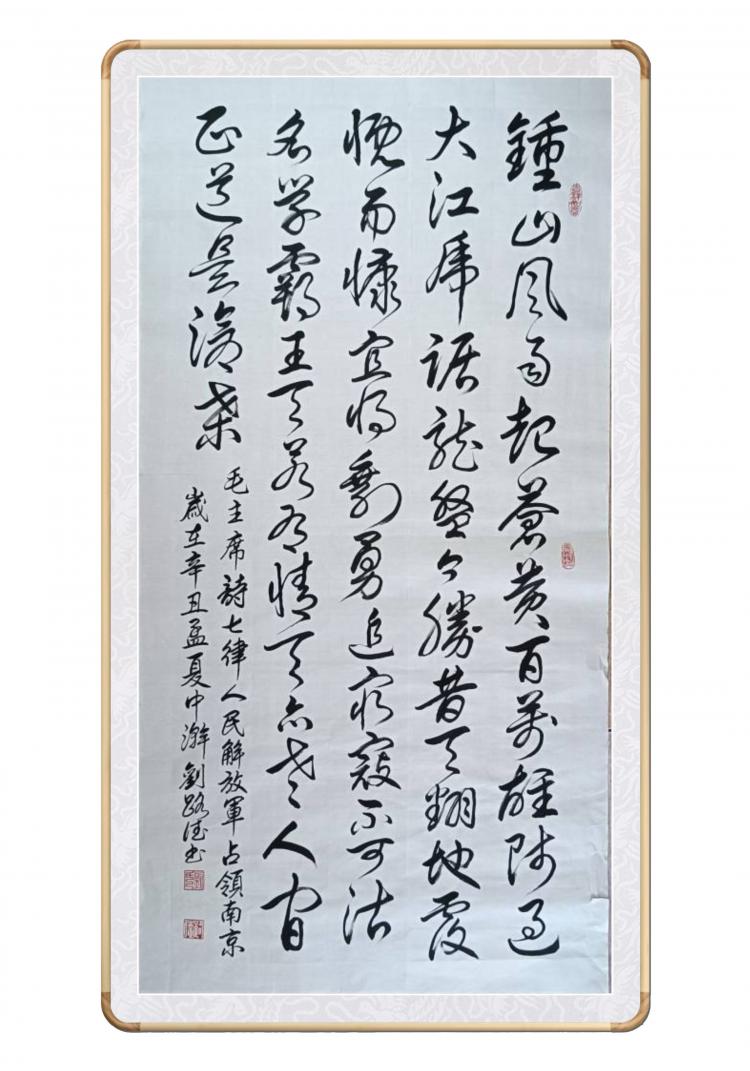 鍾山風雨起蒼黃百萬雄師過
大江虎踞龍盤今勝昔天翻地覆
慨而慷宜將剩勇追窮寇不可沽
名學霸王天若有情天亦老人間
正道是滄桑
毛主席詩七律人民解放軍占領南京
歲在辛丑孟夏中澣劉路書